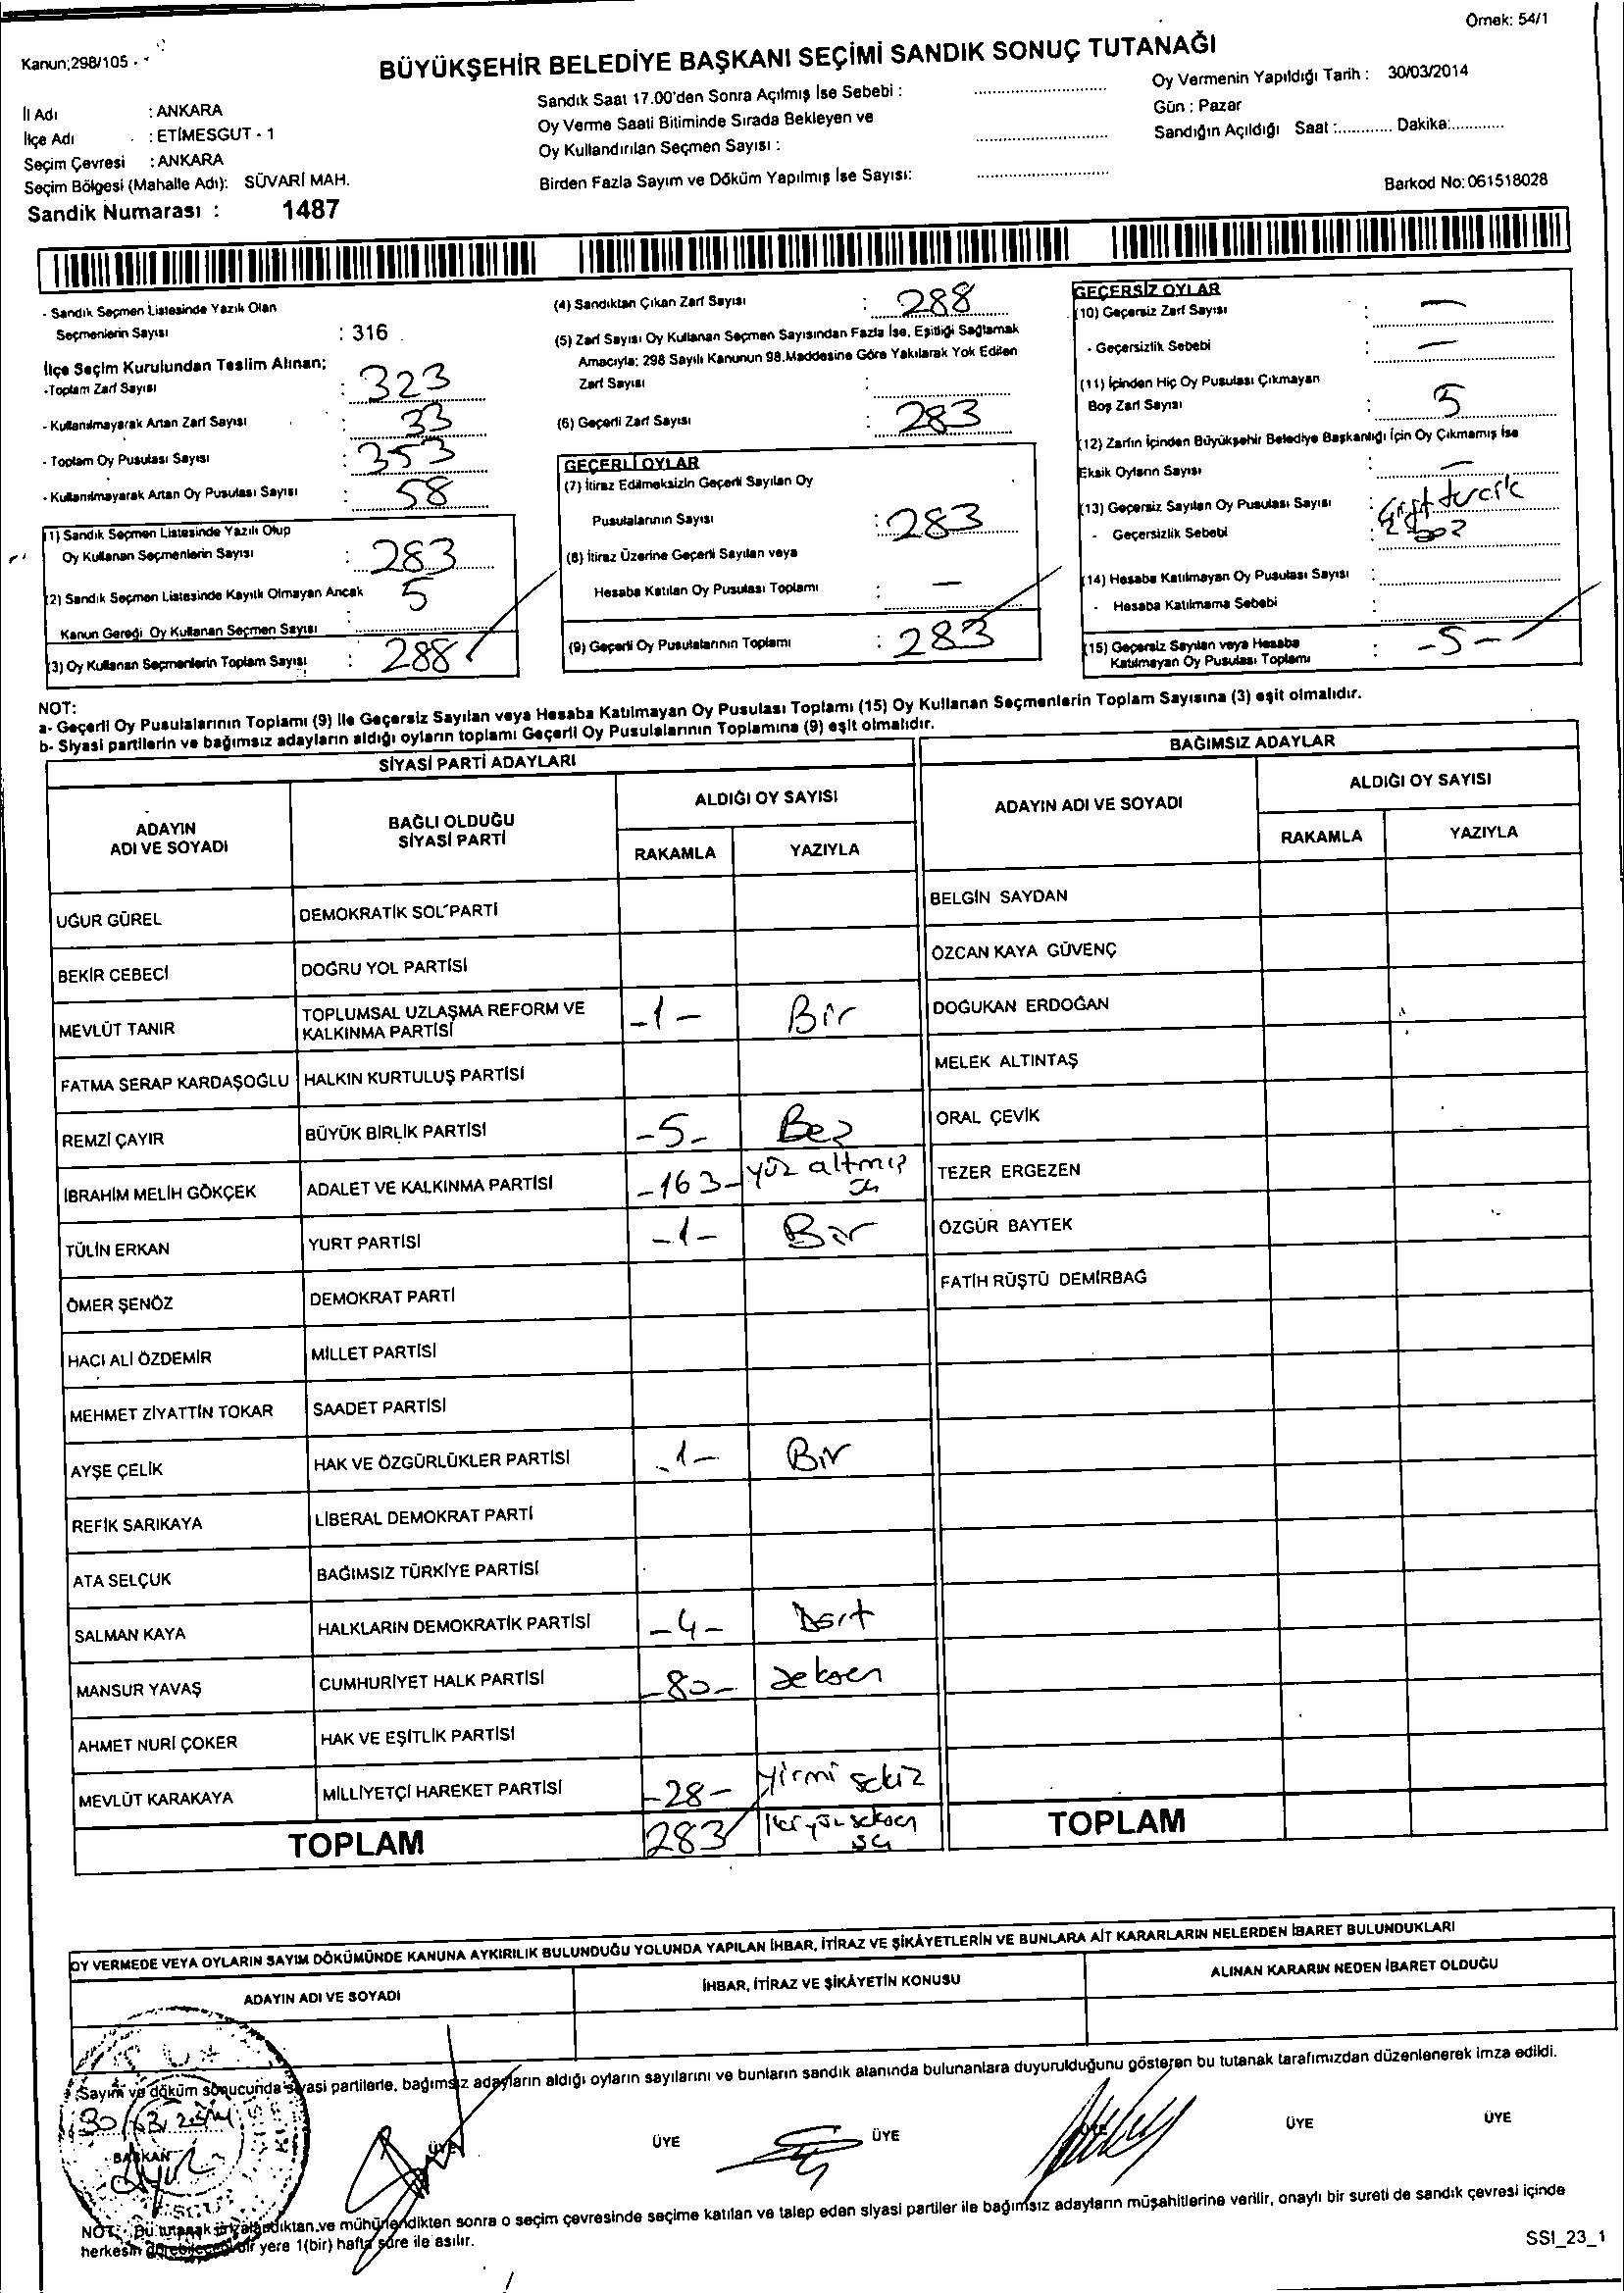 Örnek: 54/1
Kanun;298/105
BÜYÜKŞEHİR BELEDİYE BAŞKANI SEÇİMİ SANDIK SONUÇ TUTANAĞI
İl Adı : ANKARA
İlçe Adı : ETİMESGUT - 1
Seçim Çevresi : ANKARA
Seçim Bölgesi (Mahalle Adı): SÜVARİ MAH.
Sandik Numarası : 1487
Sandık Saat 17.00'den Sonra Açılmış İse Sebebi :
Oy Verme Saati Bitiminde Sırada Bekleyen ve
Oy Kullandırılan Seçmen Sayısı :
Birden Fazla Sayım ve Döküm Yapılmış İse Sayısı:
Oy Vermenin Yapıldığı Tarih : 30/03/2014
Gün : Pazar
Sandığın Açıldığı Saat :............ Dakika:............
Barkod No: 061518028
- Sandık Seçmen Listesinde Yazılı Olan
Seçmenlerin Sayısı : 316
İlçe Seçim Kurulundan Teslim Alınan;
-Toplam Zarf Sayısı : 323
- Kullanılmayarak Artan Zarf Sayısı : 33
- Toplam Oy Pusulası Sayısı : 353
- Kullanılmayarak Artan Oy Pusulası Sayısı : 58
(1) Sandık Seçmen Listesinde Yazılı Olup
Oy Kullanan Seçmenlerin Sayısı : 283
(2) Sandık Seçmen Listesinde Kayıtlı Olmayan Ancak
Kanun Gereği Oy Kullanan Seçmen Sayısı 5
(3) Oy Kullanan Seçmenlerin Toplam Sayısı : 288
(4) Sandıktan Çıkan Zarf Sayısı : 288
(5) Zarf Sayısı Oy Kullanan Seçmen Sayısından Fazla İse, Eşitliği Sağlamak
Amacıyla; 298 Sayılı Kanunun 98.Maddesine Göre Yakılarak Yok Edilen
Zarf Sayısı :
(6) Geçerli Zarf Sayısı : 283
GEÇERLİ OYLAR
(7) İtiraz Edilmeksizin Geçerli Sayılan Oy
Pusulalarının Sayısı : 283
(8) İtiraz Üzerine Geçerli Sayılan veya
Hesaba Katılan Oy Pusulası Toplamı : —
(9) Geçerli Oy Pusulalarının Toplamı : 283
GEÇERSİZ OYLAR
(10) Geçersiz Zarf Sayısı : —
- Geçersizlik Sebebi : —
(11) İçinden Hiç Oy Pusulası Çıkmayan
Boş Zarf Sayısı : 5
(12) Zarfın İçinden Büyükşehir Belediye Başkanlığı İçin Oy Çıkmamış İse
Eksik Oyların Sayısı : —
(13) Geçersiz Sayılan Oy Pusulası Sayısı :
- Geçersizlik Sebebi :
(14) Hesaba Katılmayan Oy Pusulası Sayısı :
- Hesaba Katılmama Sebebi :
(15) Geçersiz Sayılan veya Hesaba
Katılmayan Oy Pusulası Toplamı : -5-
NOT:
a- Geçerli Oy Pusulalarının Toplamı (9) ile Geçersiz Sayılan veya Hesaba Katılmayan Oy Pusulası Toplamı (15) Oy Kullanan Seçmenlerin Toplam Sayısına (3) eşit olmalıdır.
b- Siyasi partilerin ve bağımsız adayların aldığı oyların toplamı Geçerli Oy Pusulalarının Toplamına (9) eşit olmalıdır.
SİYASİ PARTİ ADAYLARI
ADAYIN ADI VE SOYADI BAĞLI OLDUĞU SİYASİ PARTİ ALDIĞI OY SAYISI RAKAMLA YAZIYLA
UĞUR GÜREL DEMOKRATİK SOL PARTİ
BEKİR CEBECİ DOĞRU YOL PARTİSİ
MEVLÜT TANIR TOPLUMSAL UZLAŞMA REFORM VE KALKINMA PARTİSİ -1- Bir
FATMA SERAP KARDAŞOĞLU HALKIN KURTULUŞ PARTİSİ
REMZİ ÇAYIR BÜYÜK BİRLİK PARTİSİ -5- Beş
İBRAHİM MELİH GÖKÇEK ADALET VE KALKINMA PARTİSİ -163- yüz altmış üç
TÜLİN ERKAN YURT PARTİSİ -1- Bir
ÖMER ŞENÖZ DEMOKRAT PARTİ
HACI ALİ ÖZDEMİR MİLLET PARTİSİ
MEHMET ZİYATTİN TOKAR SAADET PARTİSİ
AYŞE ÇELİK HAK VE ÖZGÜRLÜKLER PARTİSİ -1- Bir
REFİK SARIKAYA LİBERAL DEMOKRAT PARTİ
ATA SELÇUK BAĞIMSIZ TÜRKİYE PARTİSİ
SALMAN KAYA HALKLARIN DEMOKRATİK PARTİSİ -4- Dört
MANSUR YAVAŞ CUMHURİYET HALK PARTİSİ -80- seksen
AHMET NURİ ÇOKER HAK VE EŞİTLİK PARTİSİ
MEVLÜT KARAKAYA MİLLİYETÇİ HAREKET PARTİSİ -28- yirmi sekiz
TOPLAM 283 ikiyüz seksen üç
BAĞIMSIZ ADAYLAR
ADAYIN ADI VE SOYADI ALDIĞI OY SAYISI RAKAMLA YAZIYLA
BELGİN SAYDAN
ÖZCAN KAYA GÜVENÇ
DOĞUKAN ERDOĞAN
MELEK ALTINTAŞ
ORAL ÇEVİK
TEZER ERGEZEN
ÖZGÜR BAYTEK
FATİH RÜŞTÜ DEMİRBAĞ
TOPLAM
OY VERMEDE VEYA OYLARIN SAYIM DÖKÜMÜNDE KANUNA AYKIRILIK BULUNDUĞU YOLUNDA YAPILAN İHBAR, İTİRAZ VE ŞİKÂYETLERİN VE BUNLARA AİT KARARLARIN NELERDEN İBARET BULUNDUKLARI
ADAYIN ADI VE SOYADI İHBAR, İTİRAZ VE ŞİKÂYETİN KONUSU ALINAN KARARIN NEDEN İBARET OLDUĞU
Sayım ve döküm sonucunda siyasi partilerle, bağımsız adayların aldığı oyların sayılarını ve bunların sandık alanında bulunanlara duyurulduğunu gösteren bu tutanak tarafımızdan düzenlenerek imza edildi.
30/03/2014
BAŞKAN ÜYE ÜYE ÜYE ÜYE ÜYE ÜYE
NOT: Bu tutanak imzalandıktan ve mühürlendikten sonra o seçim çevresinde seçime katılan ve talep eden siyasi partiler ile bağımsız adayların müşahitlerine verilir, onaylı bir sureti de sandık çevresi içinde
herkesin görebileceği bir yere 1(bir) hafta süre ile asılır.
SSI_23_1